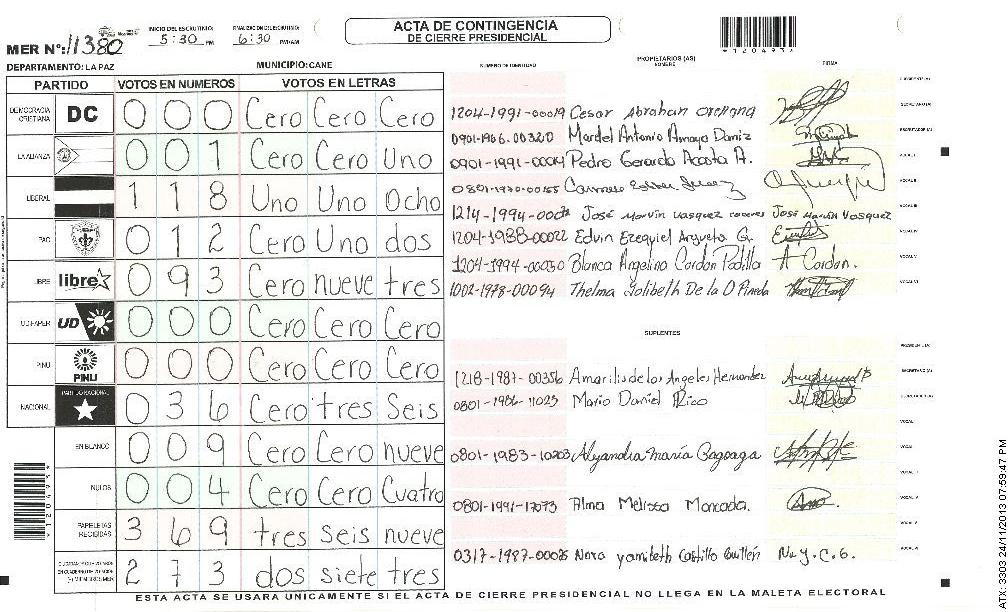 ACTA DE CONTINGENCIA
DE CIERRE PRESIDENCIAL
INICIO DEL ESCRUTINIO: 5:30 PM
FINALIZACION DEL ESCRUTINIO: 6:30 PM/AM
MER Nº: 11380
DEPARTAMENTO: LA PAZ MUNICIPIO: CANE
PARTIDO VOTOS EN NUMEROS VOTOS EN LETRAS
DEMOCRACIA CRISTIANA DC 0 0 0 Cero Cero Cero
LA ALIANZA 0 0 1 Cero Cero Uno
LIBERAL 1 1 8 Uno Uno Ocho
PAC 0 1 2 Cero Uno dos
LIBRE libre 0 9 3 Cero nueve tres
UD-FAPER UD 0 0 0 Cero Cero Cero
PINU PINU 0 0 0 Cero Cero Cero
NACIONAL PARTIDO NACIONAL 0 3 6 Cero tres Seis
EN BLANCO 0 0 9 Cero Cero nueve
NULOS 0 0 4 Cero Cero Cuatro
PAPELETAS RECIBIDAS 3 6 9 tres seis nueve
2 7 3 dos siete tres
NUMERO DE IDENTIDAD PROPIETARIOS (AS) NOMBRE FIRMA
1204-1991-00019 Cesar Abrahan Orellana
0901-1966-00320 Mardel Antonio Amaya
0901-1991-00 Pedro Gerardo Acosta A.
0801-1970-00155
1214-1994-000 José Marvin Vasquez José Marvin Vasquez
1204-1988-00022 Edvin Ezequiel Argueta G.
1204-1994-00030 Blanca Angelina Cordon Padilla A Cordon.
1002-1978-00094 Thelma Yolibeth De la O Pineda
SUPLENTES
1218-1987-00356 Amarilis de los Angeles Hernandez
0801-1986-11023 Mario Daniel Rico
0801-1983-10203 Alejandra María Gagoaga
0801-1991-17073 Alma Melissa Moncada.
0317-1987-00085 Nora yamibeth Castillo Guillén N.y.C.G.
ESTA ACTA SE USARA UNICAMENTE SI EL ACTA DE CIERRE PRESIDENCIAL NO LLEGA EN LA MALETA ELECTORAL
*120493*
*120493*
ATX: 3303 24/11/2013 07:59:47 PM